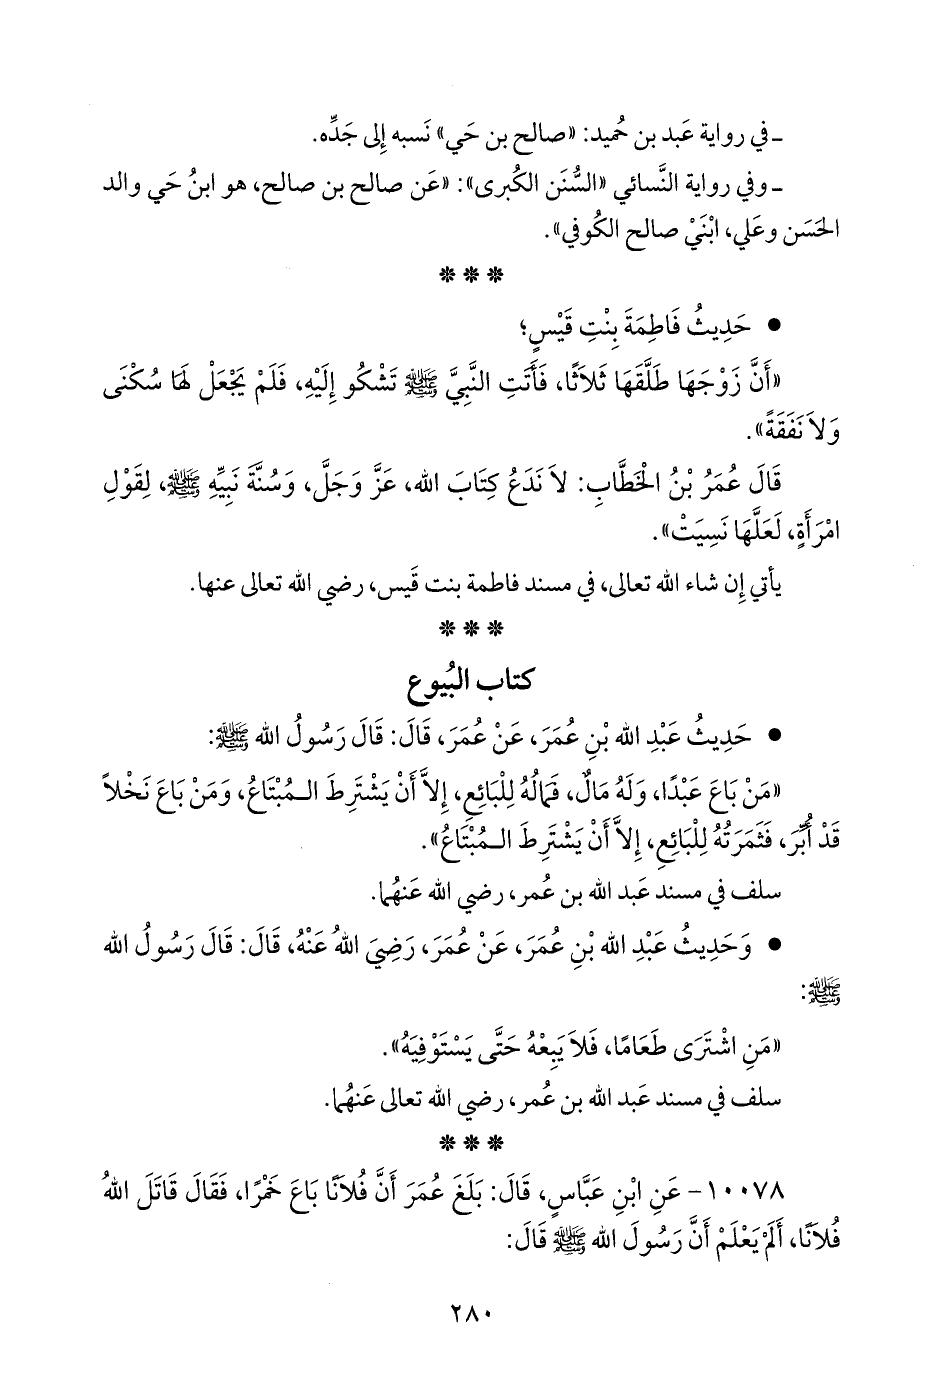 ـ في رواية عَبد بن حُميد: «صالح بن حَي» نَسبه إِلى جَدِّه.
ـ وفي رواية النَّسائي «السُّنَن الكُبرى»: «عَن صالح بن صالح، هو ابنُ حَي والد
الحَسَن وعَلي، ابْنَيْ صالح الكُوفي».
* * *
• حَدِيثُ فَاطِمَةَ بِنْتِ قَيْسٍ؛
«أَنَّ زَوْجَهَا طَلَّقَهَا ثَلاَثًا، فَأَتَتِ النَّبِيَّ ﷺ تَشْكُو إِلَيْهِ، فَلَمْ يَجْعَلْ لَهَا سُكْنَى
وَلاَ نَفَقَةً».
قَالَ عُمَرُ بْنُ الْخَطَّابِ: لاَ نَدَعُ كِتَابَ الله، عَزَّ وَجَلَّ، وَسُنَّةَ نَبِيِّهِ ﷺ، لِقَوْلِ
امْرَأَةٍ، لَعَلَّهَا نَسِيَتْ».
يأتي إِن شاء الله تعالى، في مسند فاطمة بنت قَيس، رضي الله تعالى عنها.
* * *
كتاب البُيوع
• حَدِيثُ عَبْدِ الله بْنِ عُمَرَ، عَنْ عُمَرَ، قَالَ: قَالَ رَسُولُ الله ﷺ:
«مَنْ بَاعَ عَبْدًا، وَلَهُ مَالٌ، فَمَالُهُ لِلْبَائِعِ، إِلاَّ أَنْ يَشْتَرِطَ الْـمُبْتَاعُ، وَمَنْ بَاعَ نَخْلاً
قَدْ أُبِّرَ، فَثَمَرَتُهُ لِلْبَائِعِ، إِلاَّ أَنْ يَشْتَرِطَ الْـمُبْتَاعُ».
سلف في مسند عَبد الله بن عُمر، رضي الله عَنهُما.
• وَحَدِيثُ عَبْدِ الله بْنِ عُمَرَ، عَنْ عُمَرَ، رَضِيَ اللهُ عَنْهُ، قَالَ: قَالَ رَسُولُ الله
ﷺ:
«مَنِ اشْتَرَى طَعَامًا، فَلاَ يَبِعْهُ حَتَّى يَسْتَوْفِيَهُ».
سلف في مسند عَبد الله بن عُمر، رضي الله تعالى عَنهُما.
* * *
١٠٠٧٨- عَنِ ابْنِ عَبَّاسٍ، قَالَ: بَلَغَ عُمَرَ أَنَّ فُلاَنًا بَاعَ خَمْرًا، فَقَالَ قَاتَلَ اللهُ
فُلاَنًا، أَلَمْ يَعْلَمْ أَنَّ رَسُولَ الله ﷺ قَالَ:
٢٨٠